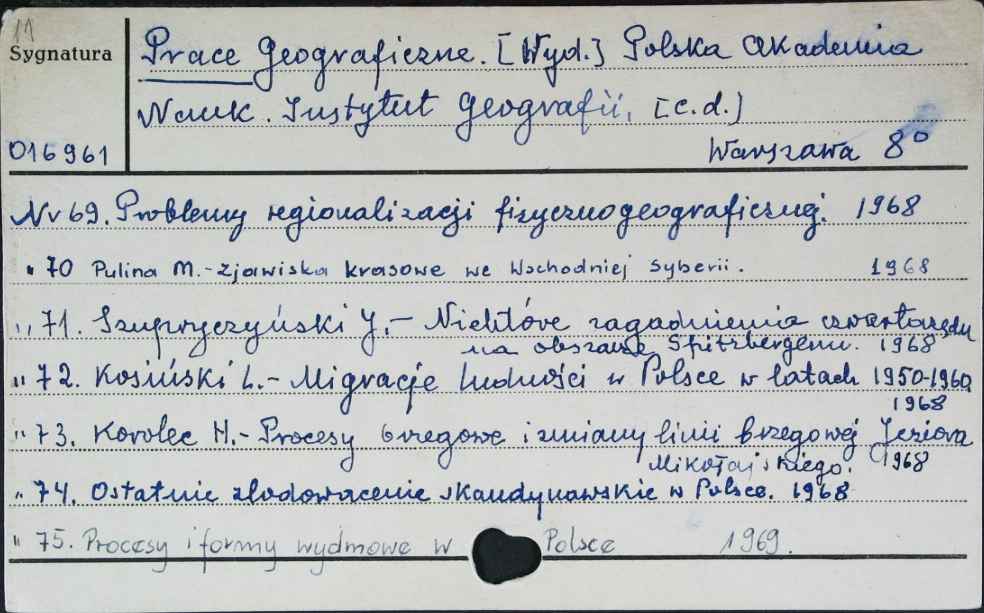 11
Sygnatura
Prace Geograficzne. [Wyd.] Polska Akademia
Nauk. Instytut Geografii, [c.d.]
016961
Warszawa 8°
Nr 69. Problemy regionalizacji fizycznogeograficznej. 1968
" 70 Pulina M.-Zjawiska krasowe we Wschodniej Syberii. 1968
" 71. Szupryczyński J.- Niektóre zagadnienia czwartorzędu
na obszarze Spitzbergenu. 1968
" 72. Kosiński L.- Migracje ludności w Polsce w latach 1950-1960
1968
" 73. Korolec H.- Procesy brzegowe i zmiany linii brzegowej Jeziora
Mikołajskiego. 1968
" 74. Ostatnie zlodowacenie skandynawskie w Polsce. 1968
" 75. Procesy i formy wydmowe w Polsce 1969.